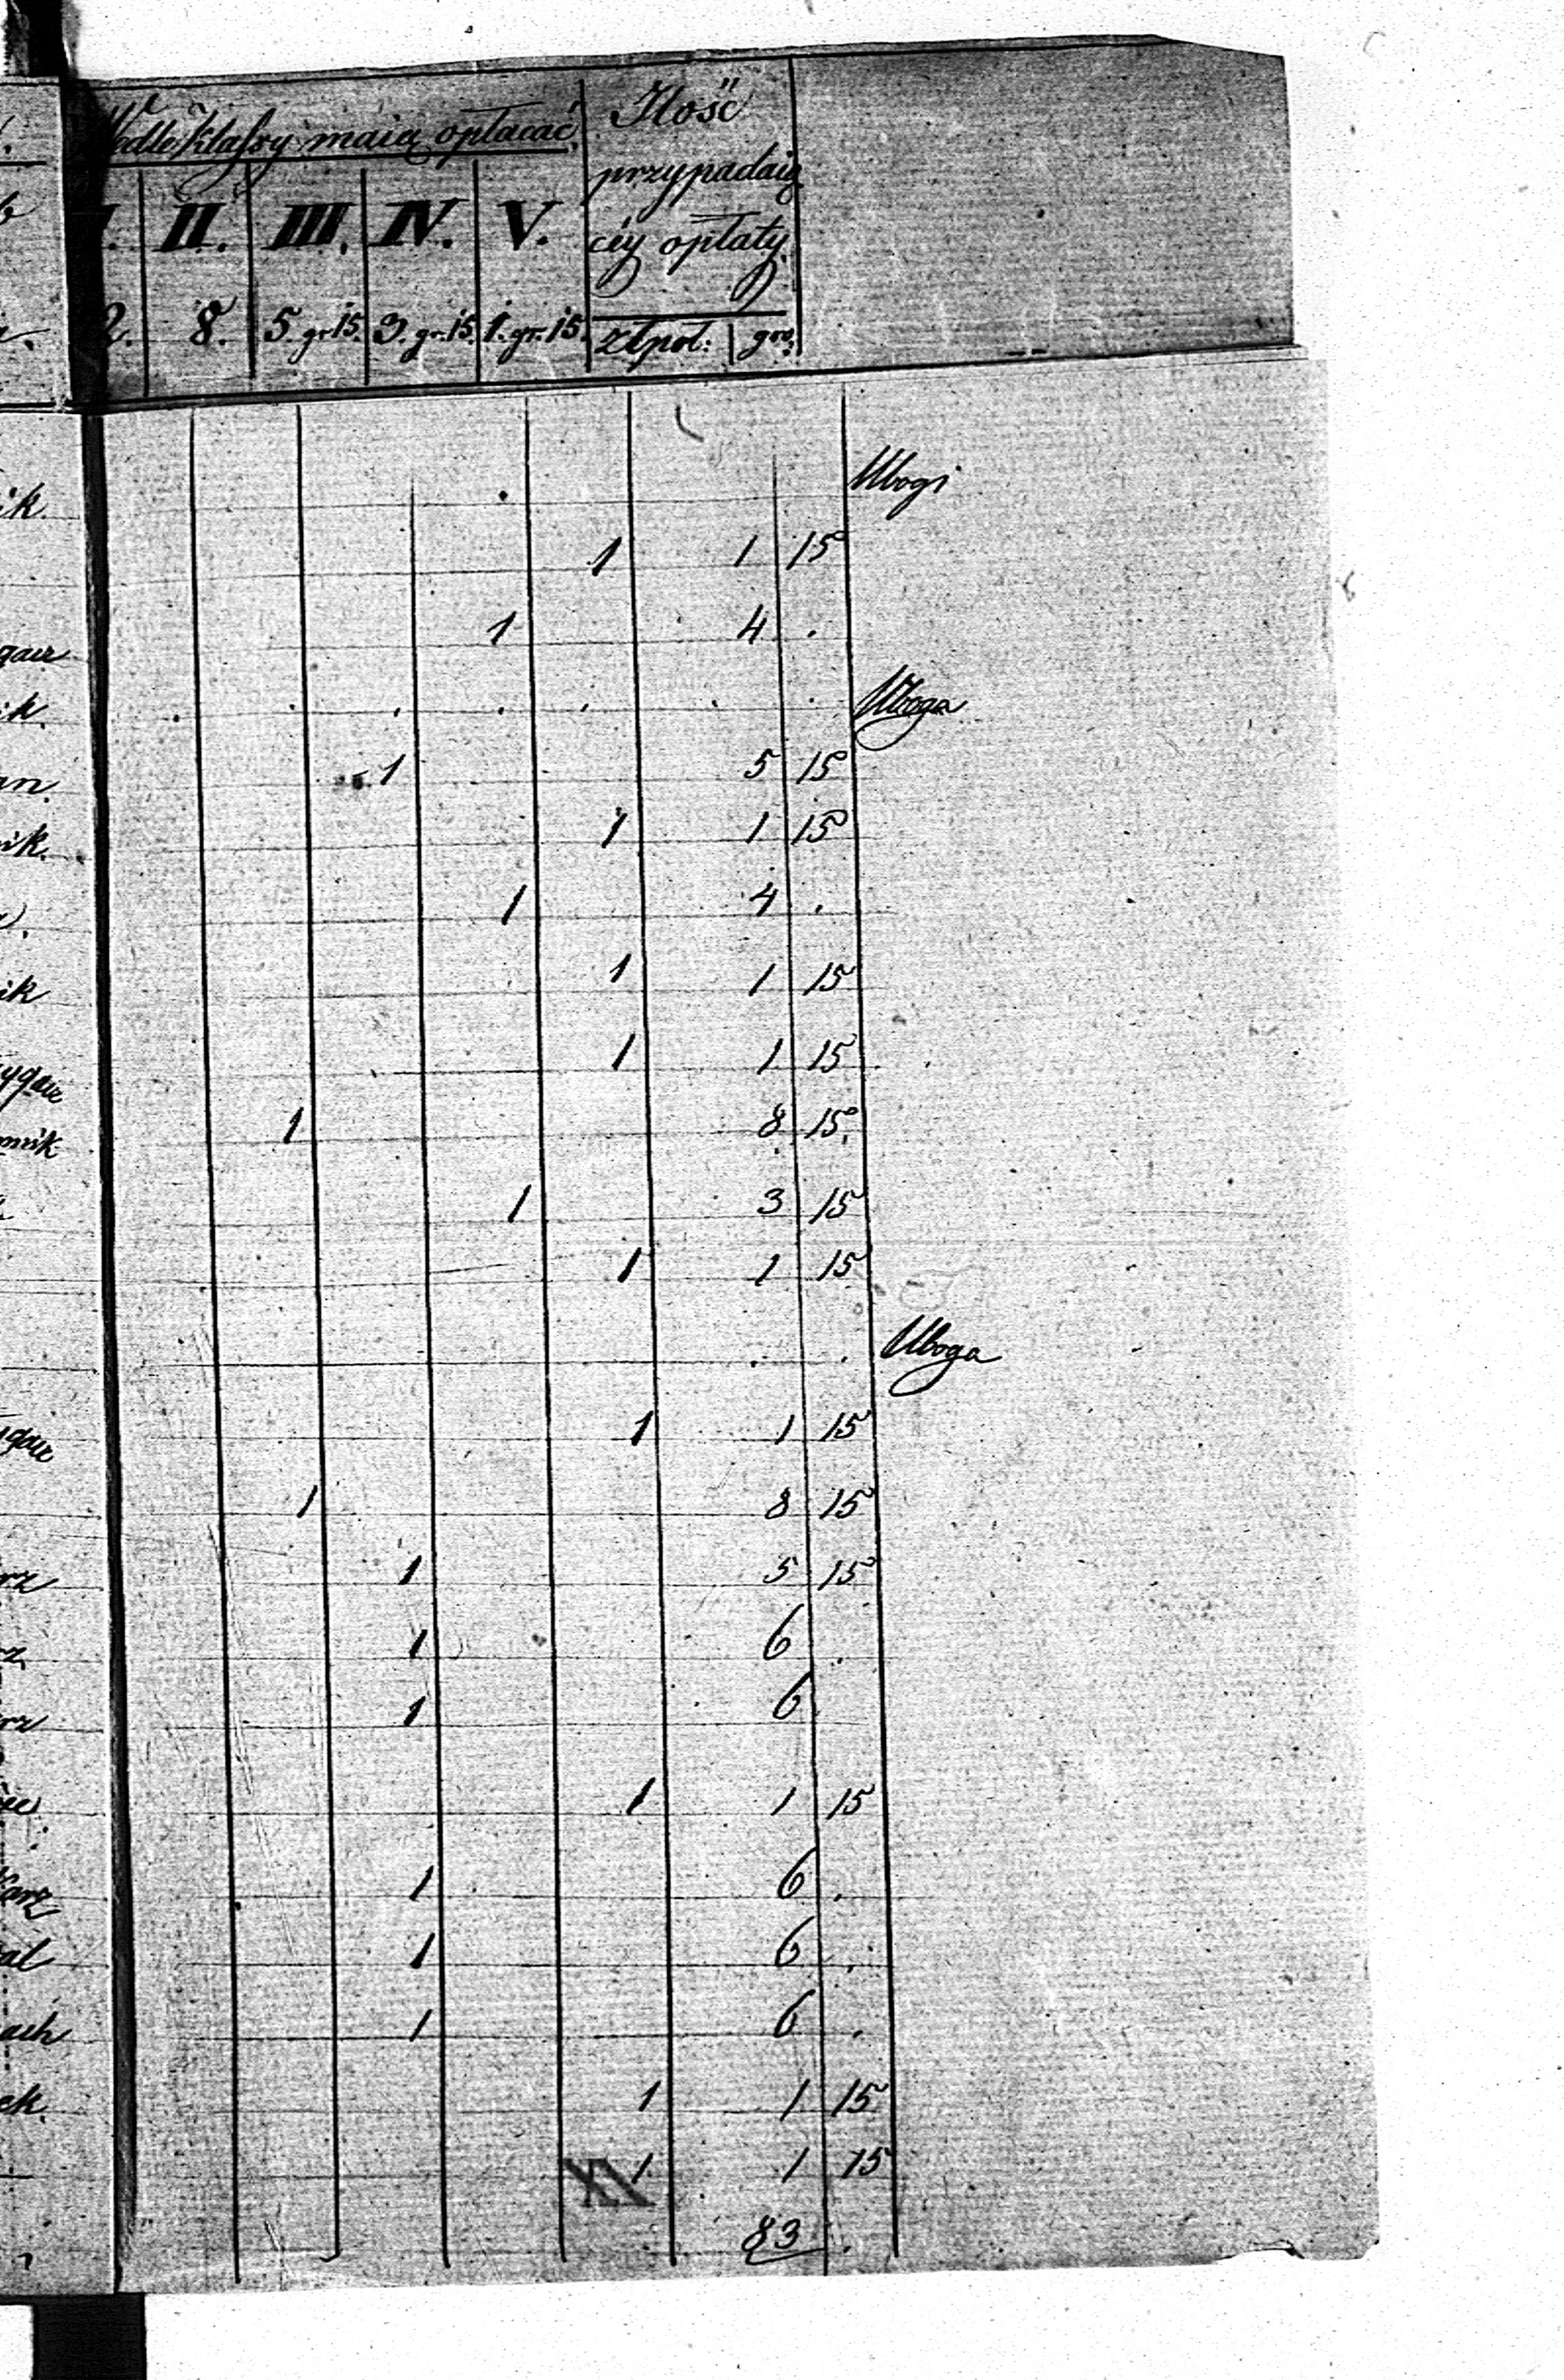 Wedle klassy maią opłacać
Ilość
przypadaią
céy opłaty.
II. III. IV. V.
8. 5. gr 15. 3. gr. 15. 1. gr. 15. złpol: gro:
ik. Ubogi
1 1 15
gaw 1 4 .
ik. . . . . . . . Uboga
an. 1 5 15
ik. 1 1 15
1 4 .
ik 1 1 15
ygaw 1 1 15
mnik 1 8 15.
1 3 15
1 1 15
. . Uboga
ygaw 1 1 15
1 8 15
rz 1 5 15
z 1 6 .
rz 1 6
1 1 15
arz 1 6 .
al 1 6 .
ach 1 6 .
ek. 1 1 15
XI 1 1 15
83 .